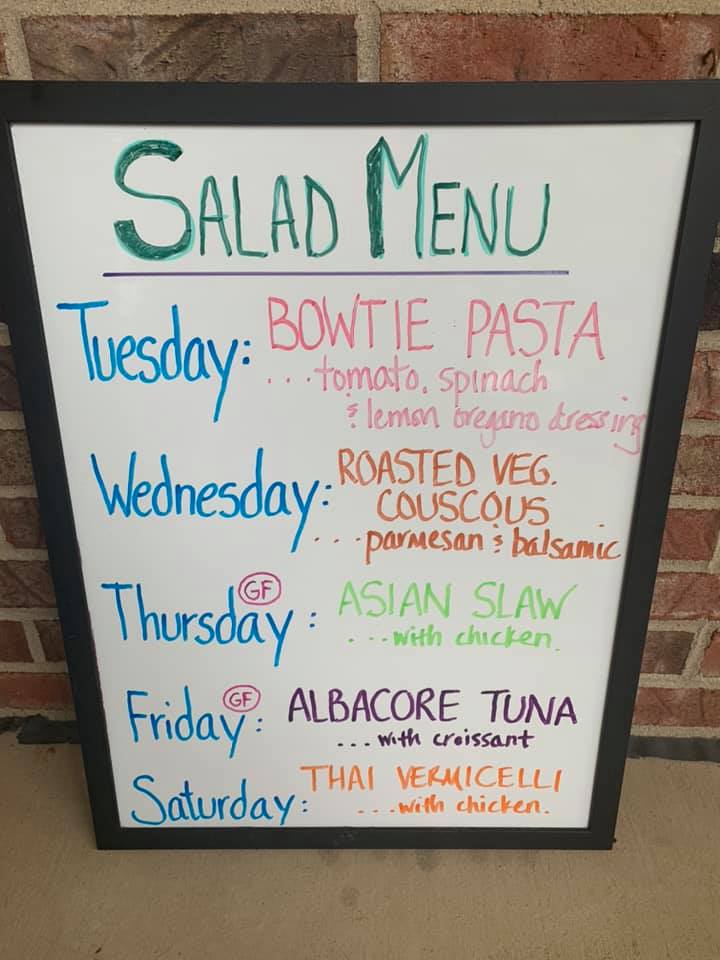 SALAD MENU
Tuesday: BOWTIE PASTA
...tomato, spinach
& lemon oregano dressing
Wednesday: ROASTED VEG.
COUSCOUS
...parmesan & balsamic
Thursday GF : ASIAN SLAW
...with chicken.
Friday GF : ALBACORE TUNA
...with croissant
Saturday: THAI VERMICELLI
...with chicken.